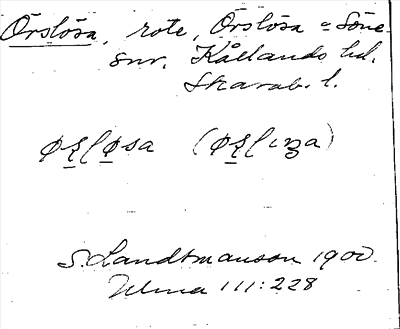 Örslösa, rote, Örslösa o Söne
snr. Kållands hd.
Skarab. l.
S. Landtmanson 1900.
Ulma 111:228